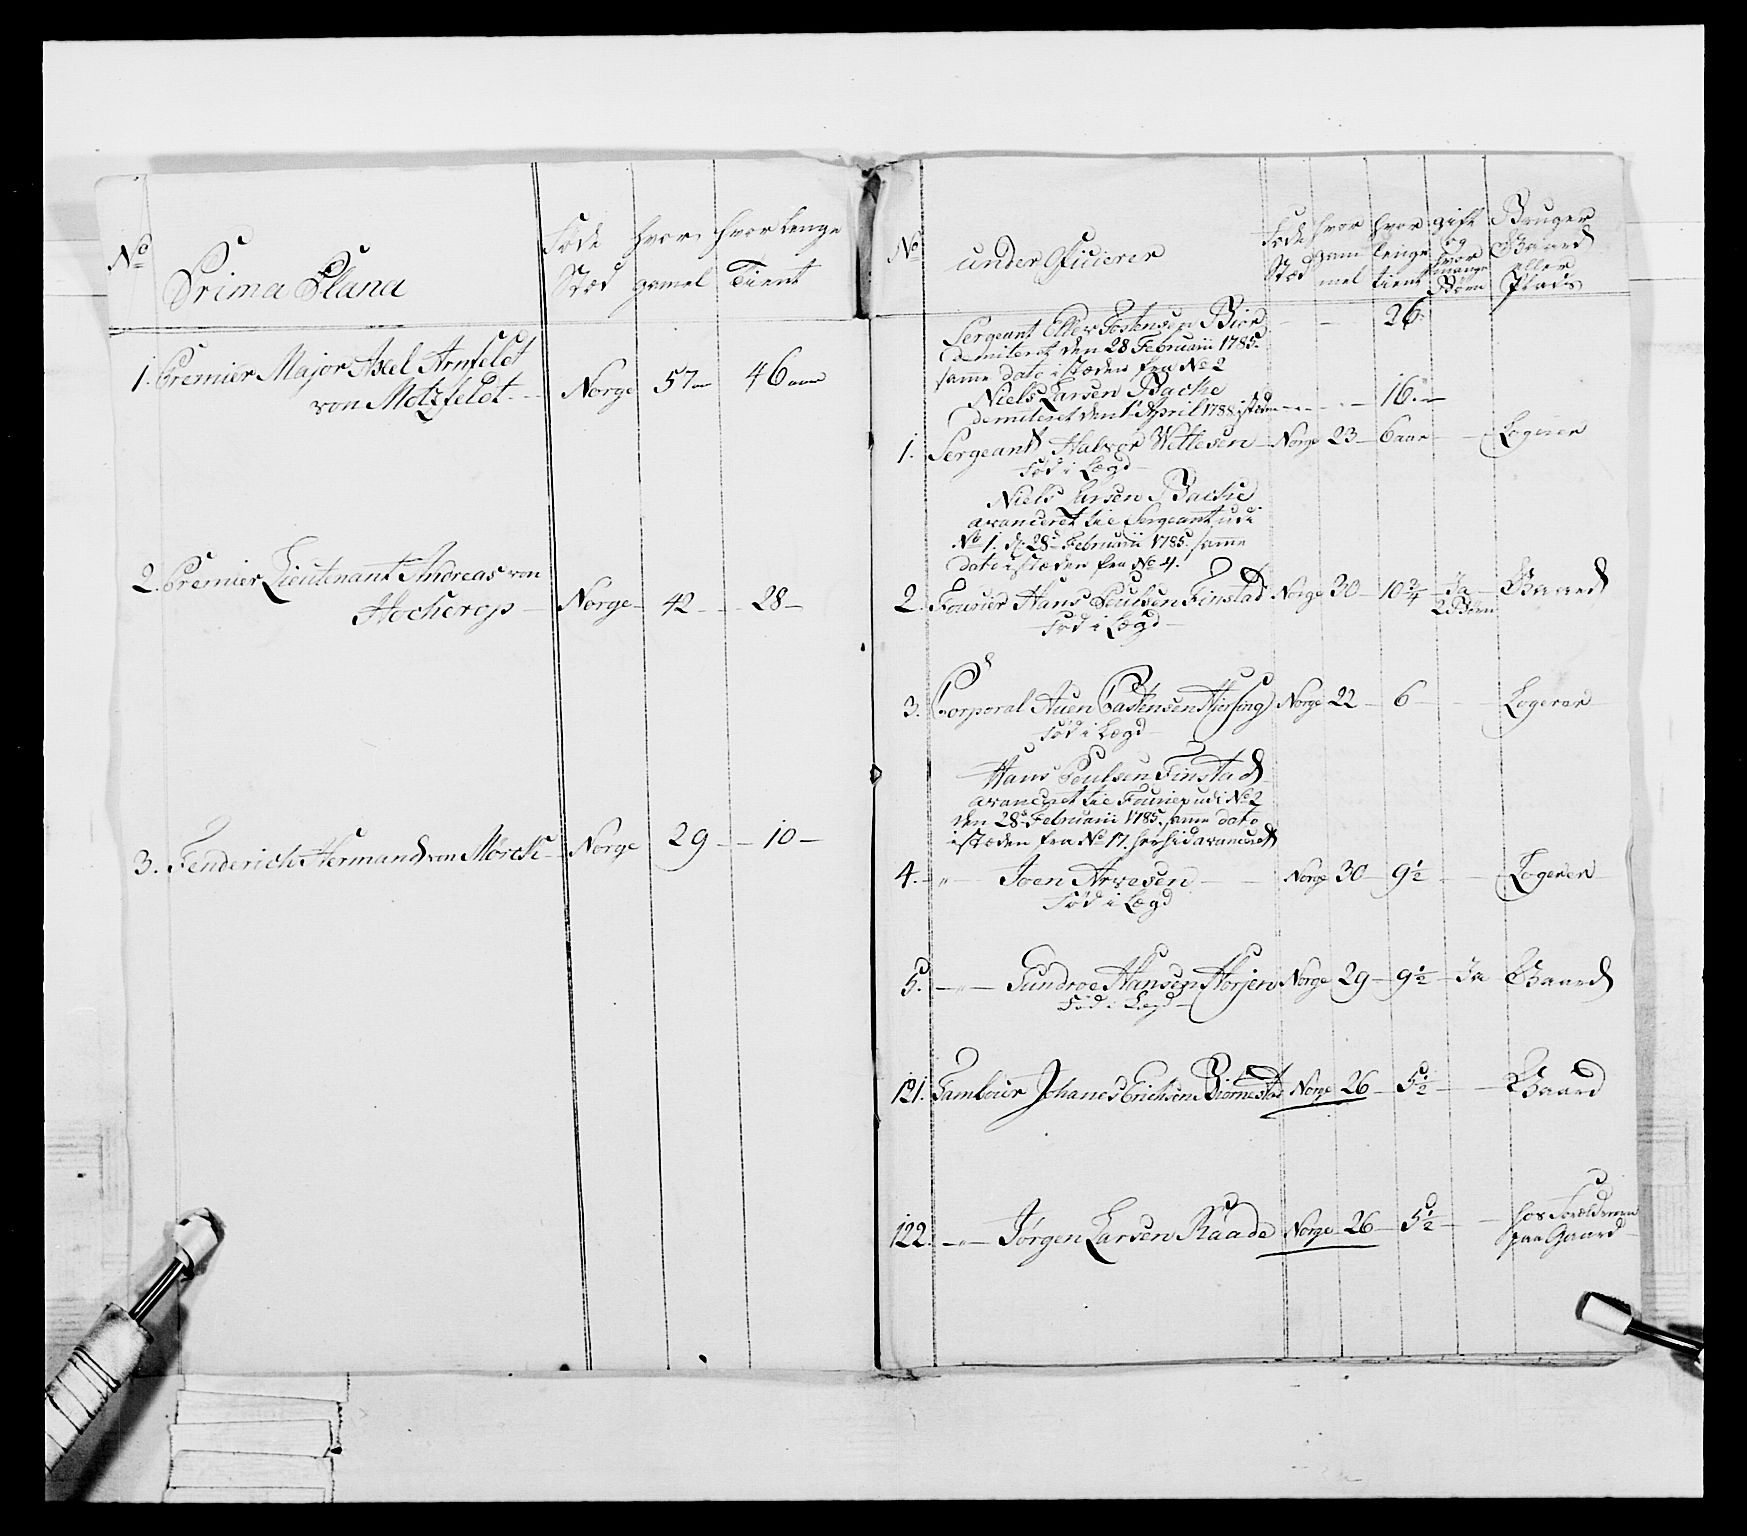 No
Prima Plana
Føde Stæd
hvor gamel
hvor lenge Tient
1. Premier Major Axel Arnfeldt
von Motzfeldt - Norge 57 46 aar
2. Premier Lieutenant Andreas von
Hockerop - Norge - 42 - 28 -
3. Fenderich Hermand von Morck - Norge 29 - 10 -
No
under Officierer
Føde Stæd
hvor gam mel
hvor lenge tient
gift og hvor mange Børn
Bruger Gaard eller Plads
Sergeant Ostensen Bior 26
demiteret den 28 Februarii 1785.
samme dato i stæden fra No 2
Niels Larsen Backe 16
demiteret den 1 April 1788 istæden
1. Sergeant Halvor Wettesen - Norge 23 - 6 aar - Logerer
Fød i Lægd
Niels Larsen Backe
avanceret til Sergeant udi
No 1. d. 28 Februarii 1785. samme
dato istæden fra No 4.
2. Fourier Hans Poulsen Finstad Norge 30 - 10 3/4 - Ja 2 Børn Gaard
Fød i Lægd
3. Corporal Auen Castensen Norge 22 - 6 - Logerer
Fød i Lægd
Hans Poulsen Finstad
avanceret til Fourier udi No 2
den 28 Februarii 1785. samme dato
istæden fra No 17. avanceret
4. - " - Joen Arvesen - Norge 30 - 9 1/2 - Logerer
Fød i Lægd
5. - " - Gundroe Hansen Horjen Norge 29 - 9 1/2 - Ja Gaard
Fød i Lægd
121. Tambour Johanes Erichsen Biørnestad Norge 26 - 5 1/2 - Gaard
122. - " - Jørgen Larsen Raade Norge - 26 - 5 1/2 - hos Forældrerne
paa Gaard